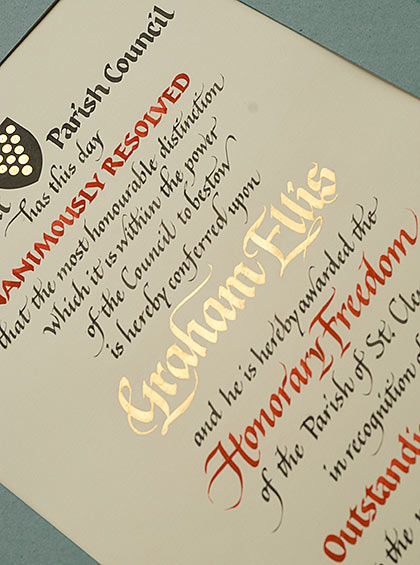 Parish Council
has this day
NANIMOUSLY RESOLVED
that the most honourable distinction
which it is within the power
of the Council to bestow
is hereby conferred upon
Graham Ellis
and he is hereby awarded the
Honorary Freedom
of the Parish of St. Cle
in recognition
Outstandi
the